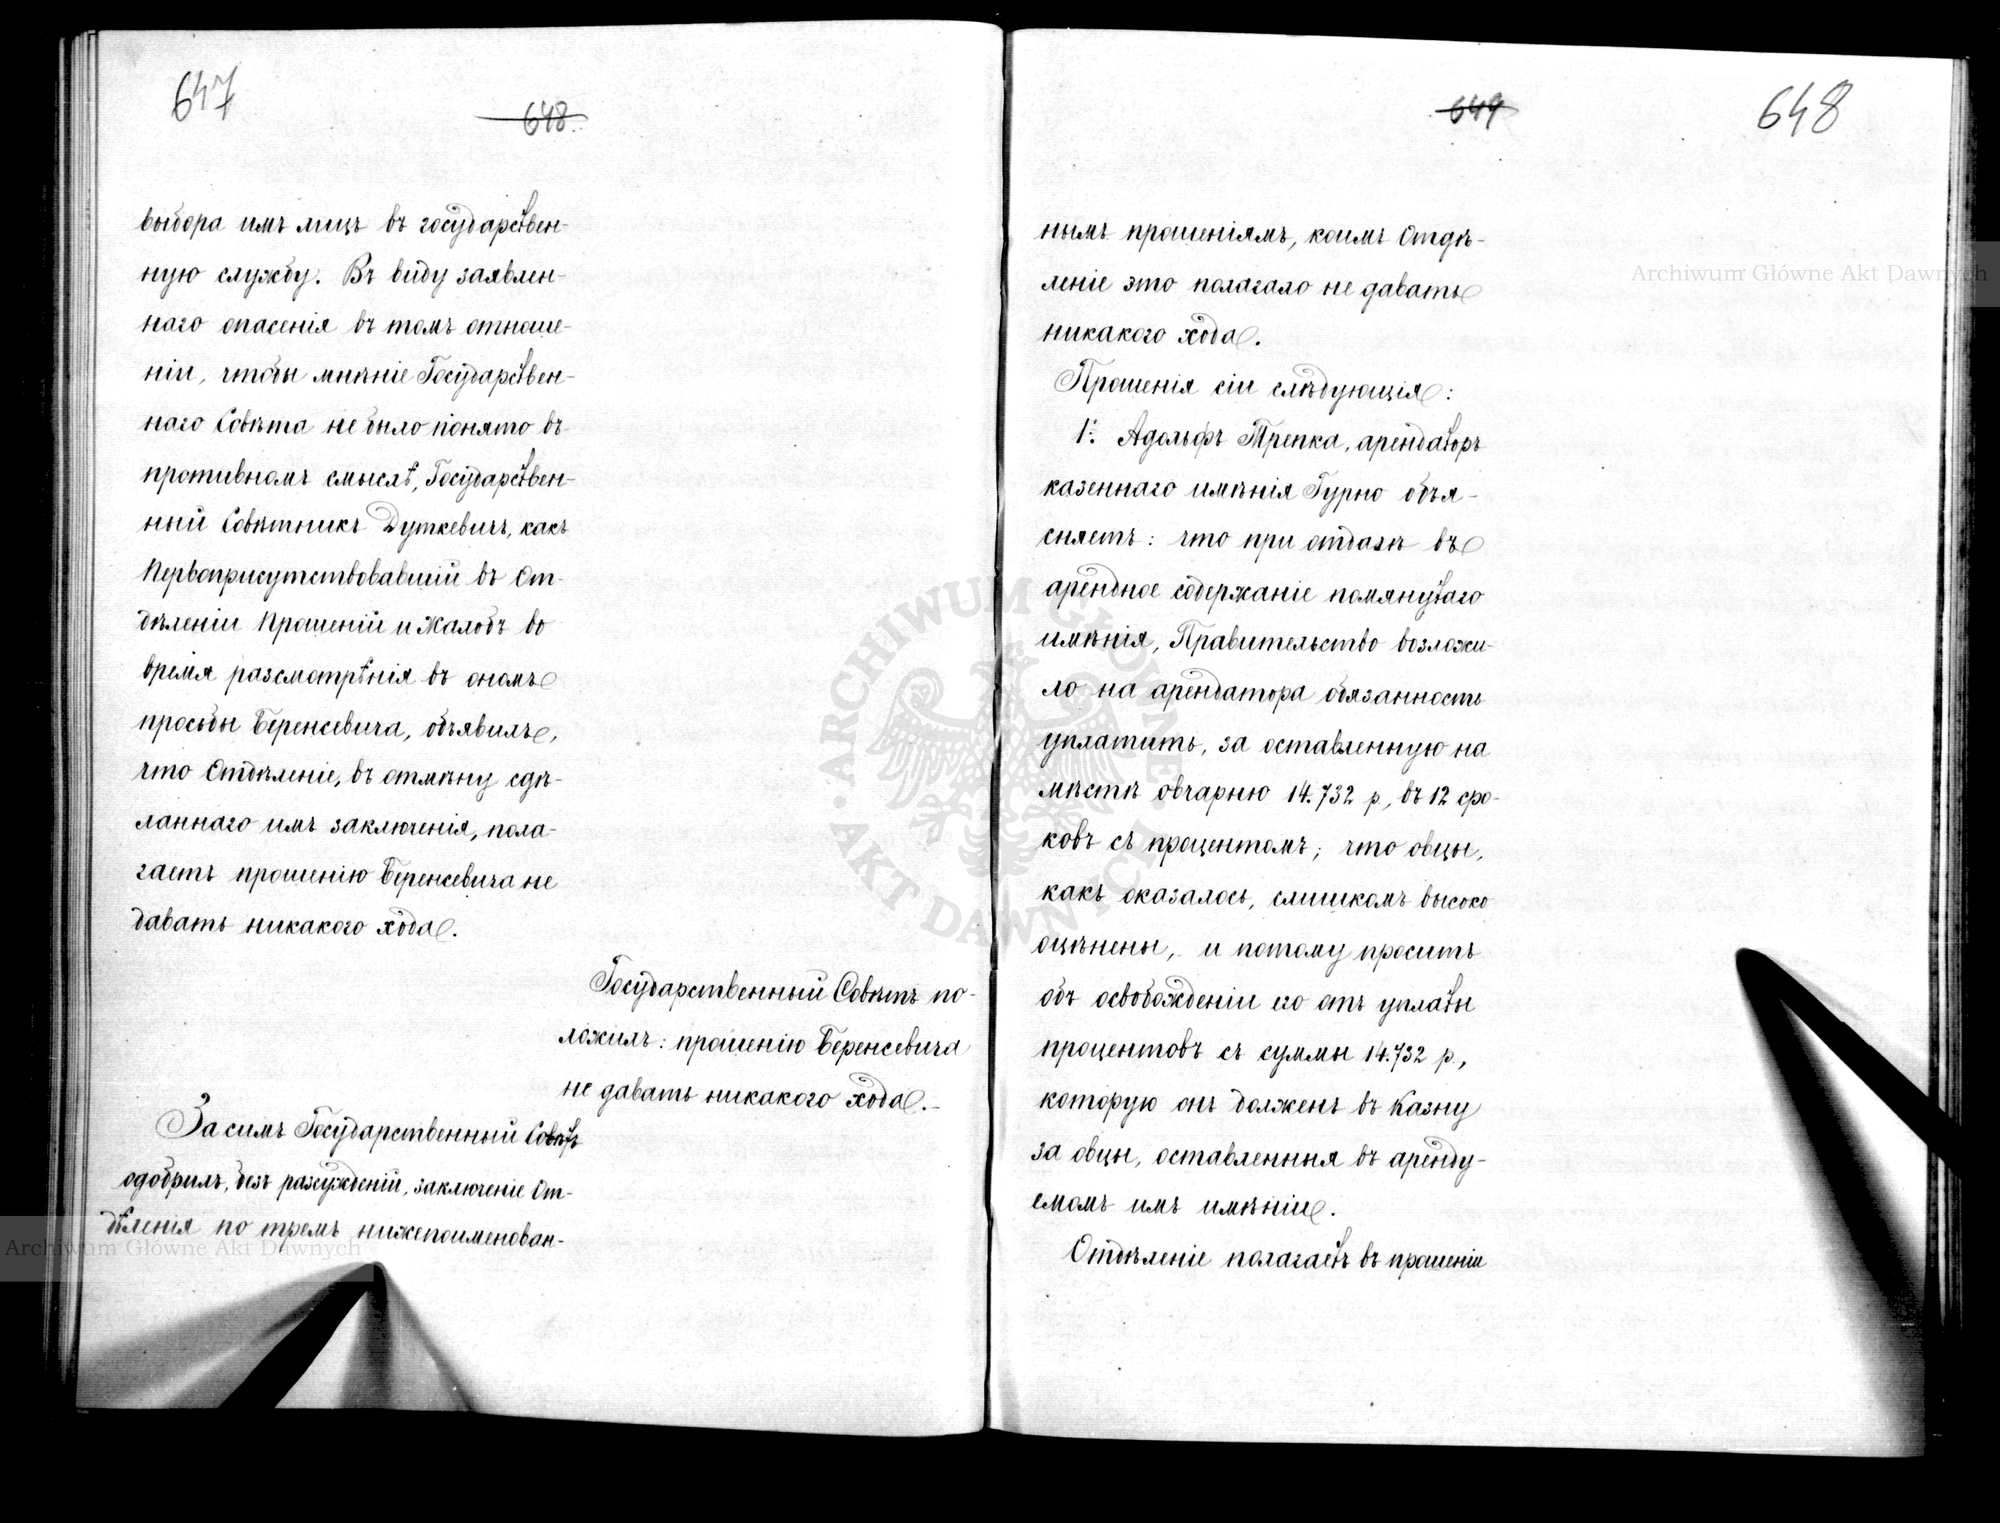 647
648
выбора имъ лицъ въ государствен-
ную службу. Въ виду заявлен-
наго опасенія въ томъ отноше-
ніи, чтобы мнѣніе Государствен-
наго Совѣта не было понято въ
противномъ смыслѣ, Государствен-
ный Совѣтникъ Дуткевичъ, какъ
Первоприсутствовавшій въ От-
дѣленіи Прошеній и Жалобъ во
время разсмотрѣнія въ ономъ
просьбы Беренсевича, объявилъ,
что Отдѣленіе, въ отмѣну сдѣ-
ланнаго имъ заключенія, пола-
гаетъ прошенію Беренсевича не
давать никакого хода.
Государственный Совѣтъ по-
ложилъ: прошенію Беренсевича
не давать никакого хода.-
За симъ Государственный Совѣтъ
одобрилъ, безъ разсужденій, заключеніе От-
дѣленія по тремъ нижепоименован-
649
648
нымъ прошеніямъ, коимъ Отдѣ-
леніе это полагало не давать
никакого хода.
Прошенія сіи слѣдующія:
1. Адольфъ Трепка, арендаторъ
казеннаго имѣнія Гурно объя-
сняетъ: что при отдачѣ въ
арендное содержаніе помянутаго
имѣнія, Правительство возложи-
ло на арендатора обязанность
уплатить, за оставленную на
мѣстѣ овчарню 14.732 р., въ 12 сро-
ковъ съ процентомъ; что овцы,
какъ оказалось, слишкомъ высоко
оцѣнены, и потому проситъ
объ освобожденіи его отъ уплаты
процентовъ съ суммы 14.732 р.,
которую онъ долженъ въ Казну
за овцы, оставленныя въ аренду-
емомъ имъ имѣніи.
Отдѣленіе полагаетъ въ прошеніи
Archiwum Główne Akt Dawnych
Archiwum Główne Akt Dawnych
ARCHIWUM GŁÓWNE AKT DAWNYCH